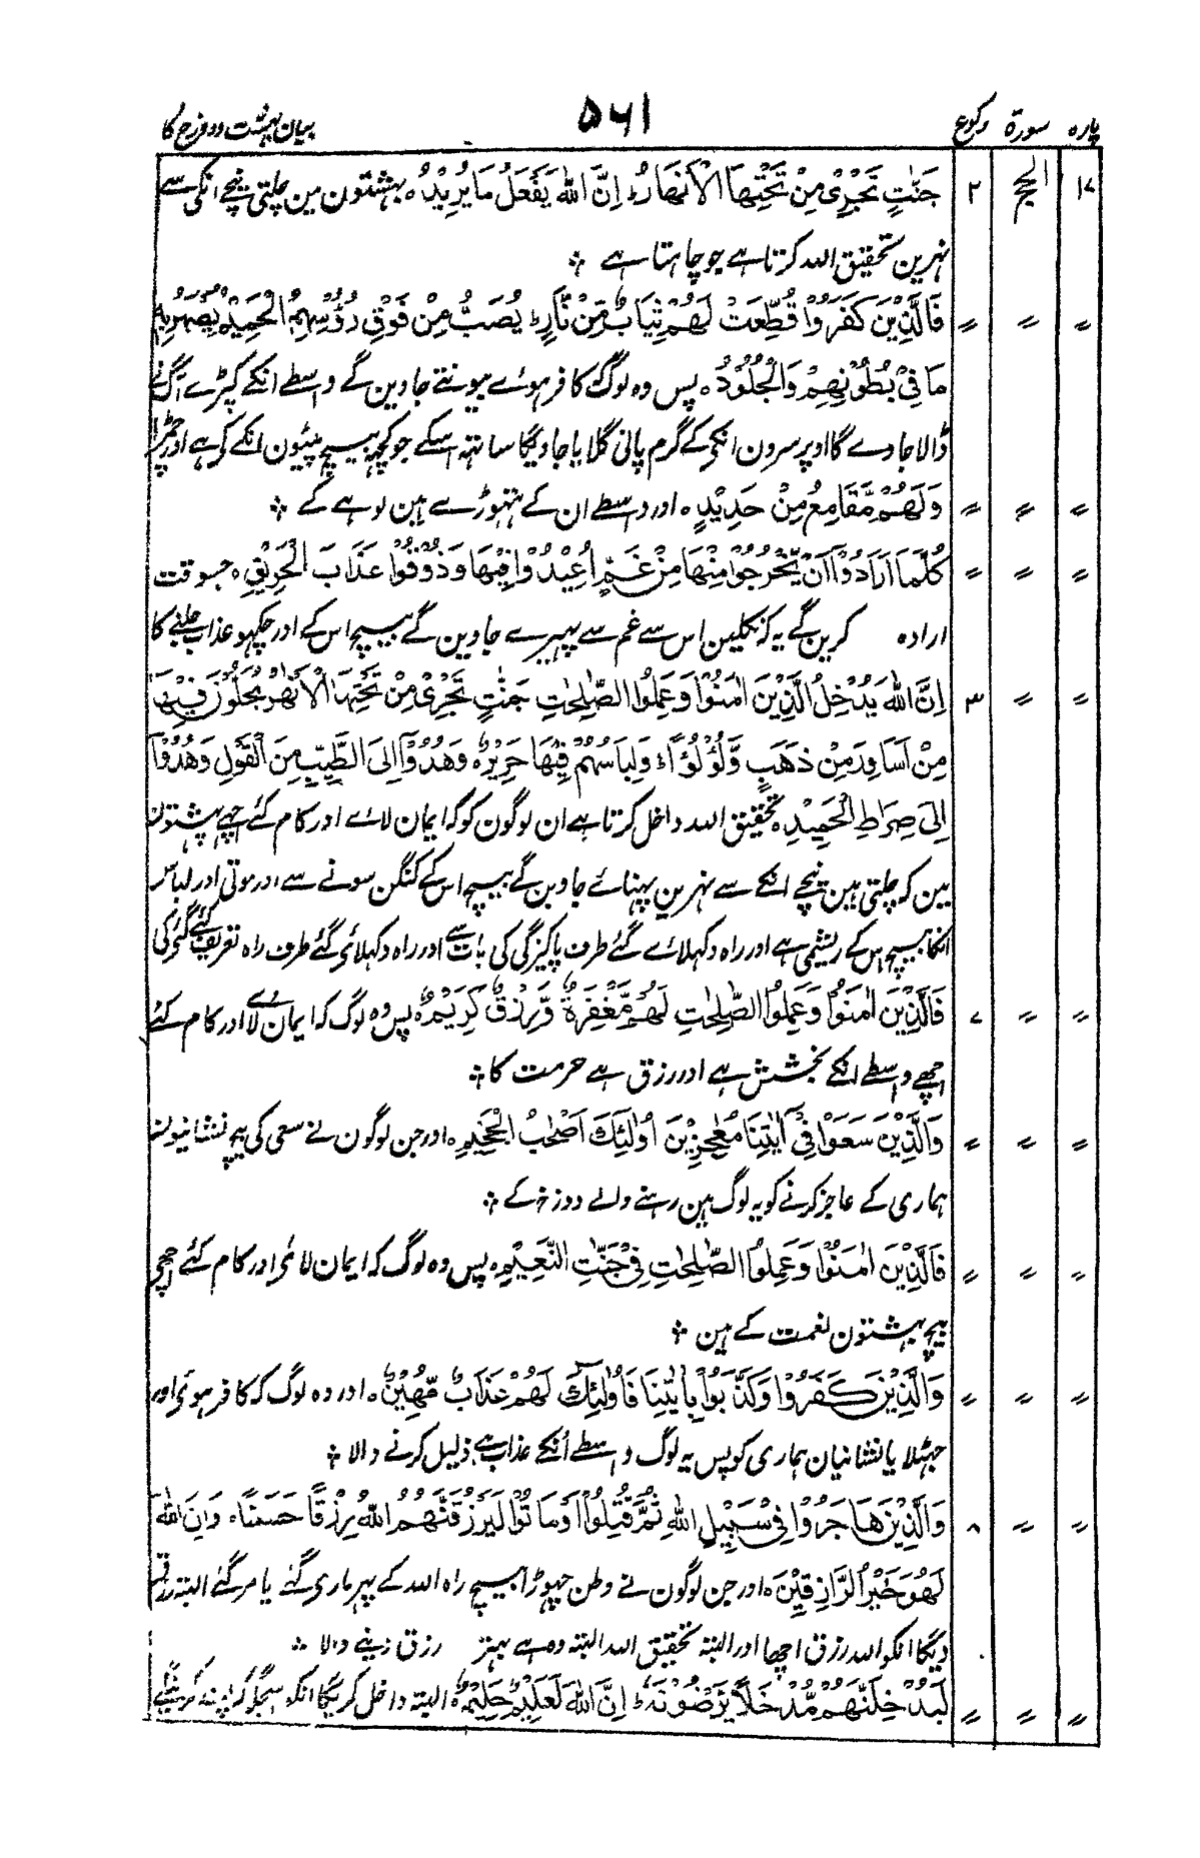 پارہ سورۃ رکوع ۵۶۱ بیان بہشت و دوزخ کا
۱۷ الحج ۲ جَنّٰتٍ تَجْرِیْ مِنْ تَحْتِهَا الْاَنْهَارُ ؕ اِنَّ اللّٰهَ یَفْعَلُ مَا یُرِیْدُ ہ بہشتون مین چلتی نیچے انکی سے
نہرین تحقیق اللہ کرتا ہے جو چاہتا ہے ؞
〃 〃 〃 فَالَّذِیْنَ كَفَرُوْا قُطِّعَتْ لَهُمْ ثِیَابٌ مِّنْ نَّارٍ ؕ یُصَبُّ مِنْ فَوْقِ رُءُوْسِهِمُ الْحَمِیْمُ یُصْهَرُ بِهٖ
مَا فِیْ بُطُوْنِهِمْ وَالْجُلُوْدُ ہ پس وہ لوگ کا فر ہوئے بیونتے جاوین گے واسطے انکے کپڑے آگ نے
ڈالا جاوے گا اوپر سرون انکی کے گرم پانی گلایا جاویگا ساتہہ اسکے جو کچہہ بیچ پیٹون انکے کے ہے اور چمڑا
〃 〃 〃 وَلَهُمْ مَّقَامِعُ مِنْ حَدِیْدٍ ہ اور واسطے ان کے ہتہوڑے ہین لوہے کے ؞
〃 〃 〃 كُلَّمَا اَرَادُوْۤا اَنْ یَّخْرُجُوْا مِنْهَا مِنْ غَمٍّ اُعِیْدُوْا فِیْهَا وَذُوْقُوْا عَذَابَ الْحَرِیْقِ ہ جسوقت
ارادہ کرین گے یہ کہ نکلین اس سے غم سے پہیرے جاوین گے بیچ اس کے اور چکہو عذاب جلنے کا
〃 〃 ۳ اِنَّ اللّٰهَ یُدْخِلُ الَّذِیْنَ اٰمَنُوْا وَعَمِلُوا الصّٰلِحٰتِ جَنّٰتٍ تَجْرِیْ مِنْ تَحْتِهَا الْاَنْهٰرُ یُحَلَّوْنَ فِیْهَا
مِنْ اَسَاوِرَ مِنْ ذَهَبٍ وَّلُؤْلُؤًا ؕ وَلِبَاسُهُمْ فِیْهَا حَرِیْرٌ ہ وَهُدُوْۤا اِلَی الطَّیِّبِ مِنَ الْقَوْلِ وَهُدُوْۤا
اِلٰی صِرَاطِ الْحَمِیْدِ ہ تحقیق اللہ داخل کرتا ہے ان لوگون کو کہ ایمان لائے اور کام کئے اچہے بہشتون
مین کہ چلتی ہین نیچے انکے سے نہرین پہنائے جاوین گے بیچ اس کے کنگن سونے سے اور موتی اور لباس
انکا بیچ اس کے ریشمی ہے اور راہ دکہلائے گئے طرف پاکیزگی کی بات سے اور راہ دکہلائی گئے طرف راہ تعریف کئے گئی کی
〃 〃 ۷ فَالَّذِیْنَ اٰمَنُوْا وَعَمِلُوا الصّٰلِحٰتِ لَهُمْ مَّغْفِرَةٌ وَّرِزْقٌ كَرِیْمٌ ہ پس وہ لوگ کہ ایمان لائے اور کام کئے
اچہے واسطے انکے بخشش ہے اور رزق ہے حرمت کا ؞
〃 〃 〃 وَالَّذِیْنَ سَعَوْا فِیْۤ اٰیٰتِنَا مُعٰجِزِیْنَ اُولٰٓئِكَ اَصْحٰبُ الْجَحِیْمِ ہ اور جن لوگون نے سعی کی بیچ نشانیون
ہماری کے عاجز کرنے کو یہ لوگ ہین رہنے والے دوزخ کے ؞
〃 〃 〃 فَالَّذِیْنَ اٰمَنُوْا وَعَمِلُوا الصّٰلِحٰتِ فِیْ جَنّٰتِ النَّعِیْمِ ہ پس وہ لوگ کہ ایمان لائی اور کام کئے اچہی
بیچ بہشتون نعمت کے ہین ؞
〃 〃 〃 وَالَّذِیْنَ كَفَرُوْا وَكَذَّبُوْا بِاٰیٰتِنَا فَاُولٰٓئِكَ لَهُمْ عَذَابٌ مُّهِیْنٌ ہ اور وہ لوگ کہ کافر ہوئی اور
جہٹلایا نشانیان ہماری کو پس یہ لوگ واسطے اُنکے عذاب ہے ذلیل کرنے والا ؞
〃 〃 ۸ وَالَّذِیْنَ هَاجَرُوْا فِیْ سَبِیْلِ اللّٰهِ ثُمَّ قُتِلُوْۤا اَوْ مَاتُوْا لَیَرْزُقَنَّهُمُ اللّٰهُ رِزْقًا حَسَنًا ؕ وَاِنَّ اللّٰهَ
لَهُوَ خَیْرُ الرّٰزِقِیْنَ ہ اور جن لوگون نے وطن چہوڑا بیچ راہ اللہ کے پہر ماری گئے یا مر گئے البتہ رزق
دیگا انکو اللہ رزق اچھا اور البتہ تحقیق اللہ البتہ وہ ہے بہتر رزق دینے والا ؞
〃 〃 〃 لَیُدْخِلَنَّهُمْ مُّدْخَلًا یَّرْضَوْنَهٗ ؕ اِنَّ اللّٰهَ لَعَلِیْمٌ حَلِیْمٌ ہ البتہ داخل کریگا انکو اسجگہ کہ پسند کرینگے